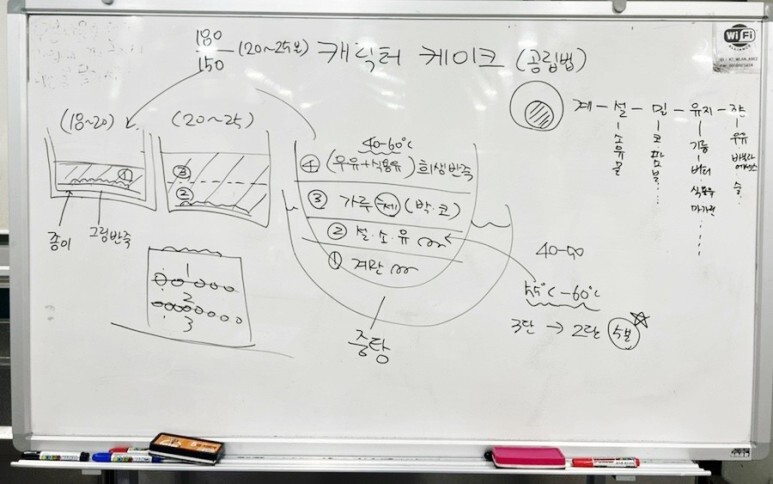 180
150
(20~25분)
캐릭터 케이크 (공립법)
(18~20)
(20~25)
①
③
②
종이
그림반죽
1
2
3
40-60℃
④ (우유+식용유) 희생반죽
③ 가루 체 (박·코)
② 설·소·유
① 계란
중탕
40-50
55℃-60℃
3단 → 2단 5분
계 - 설 - 밀 - 유지 - 쟌
소
유
물
코
기름
버터
식용유
마가린
우유
술
WiFi